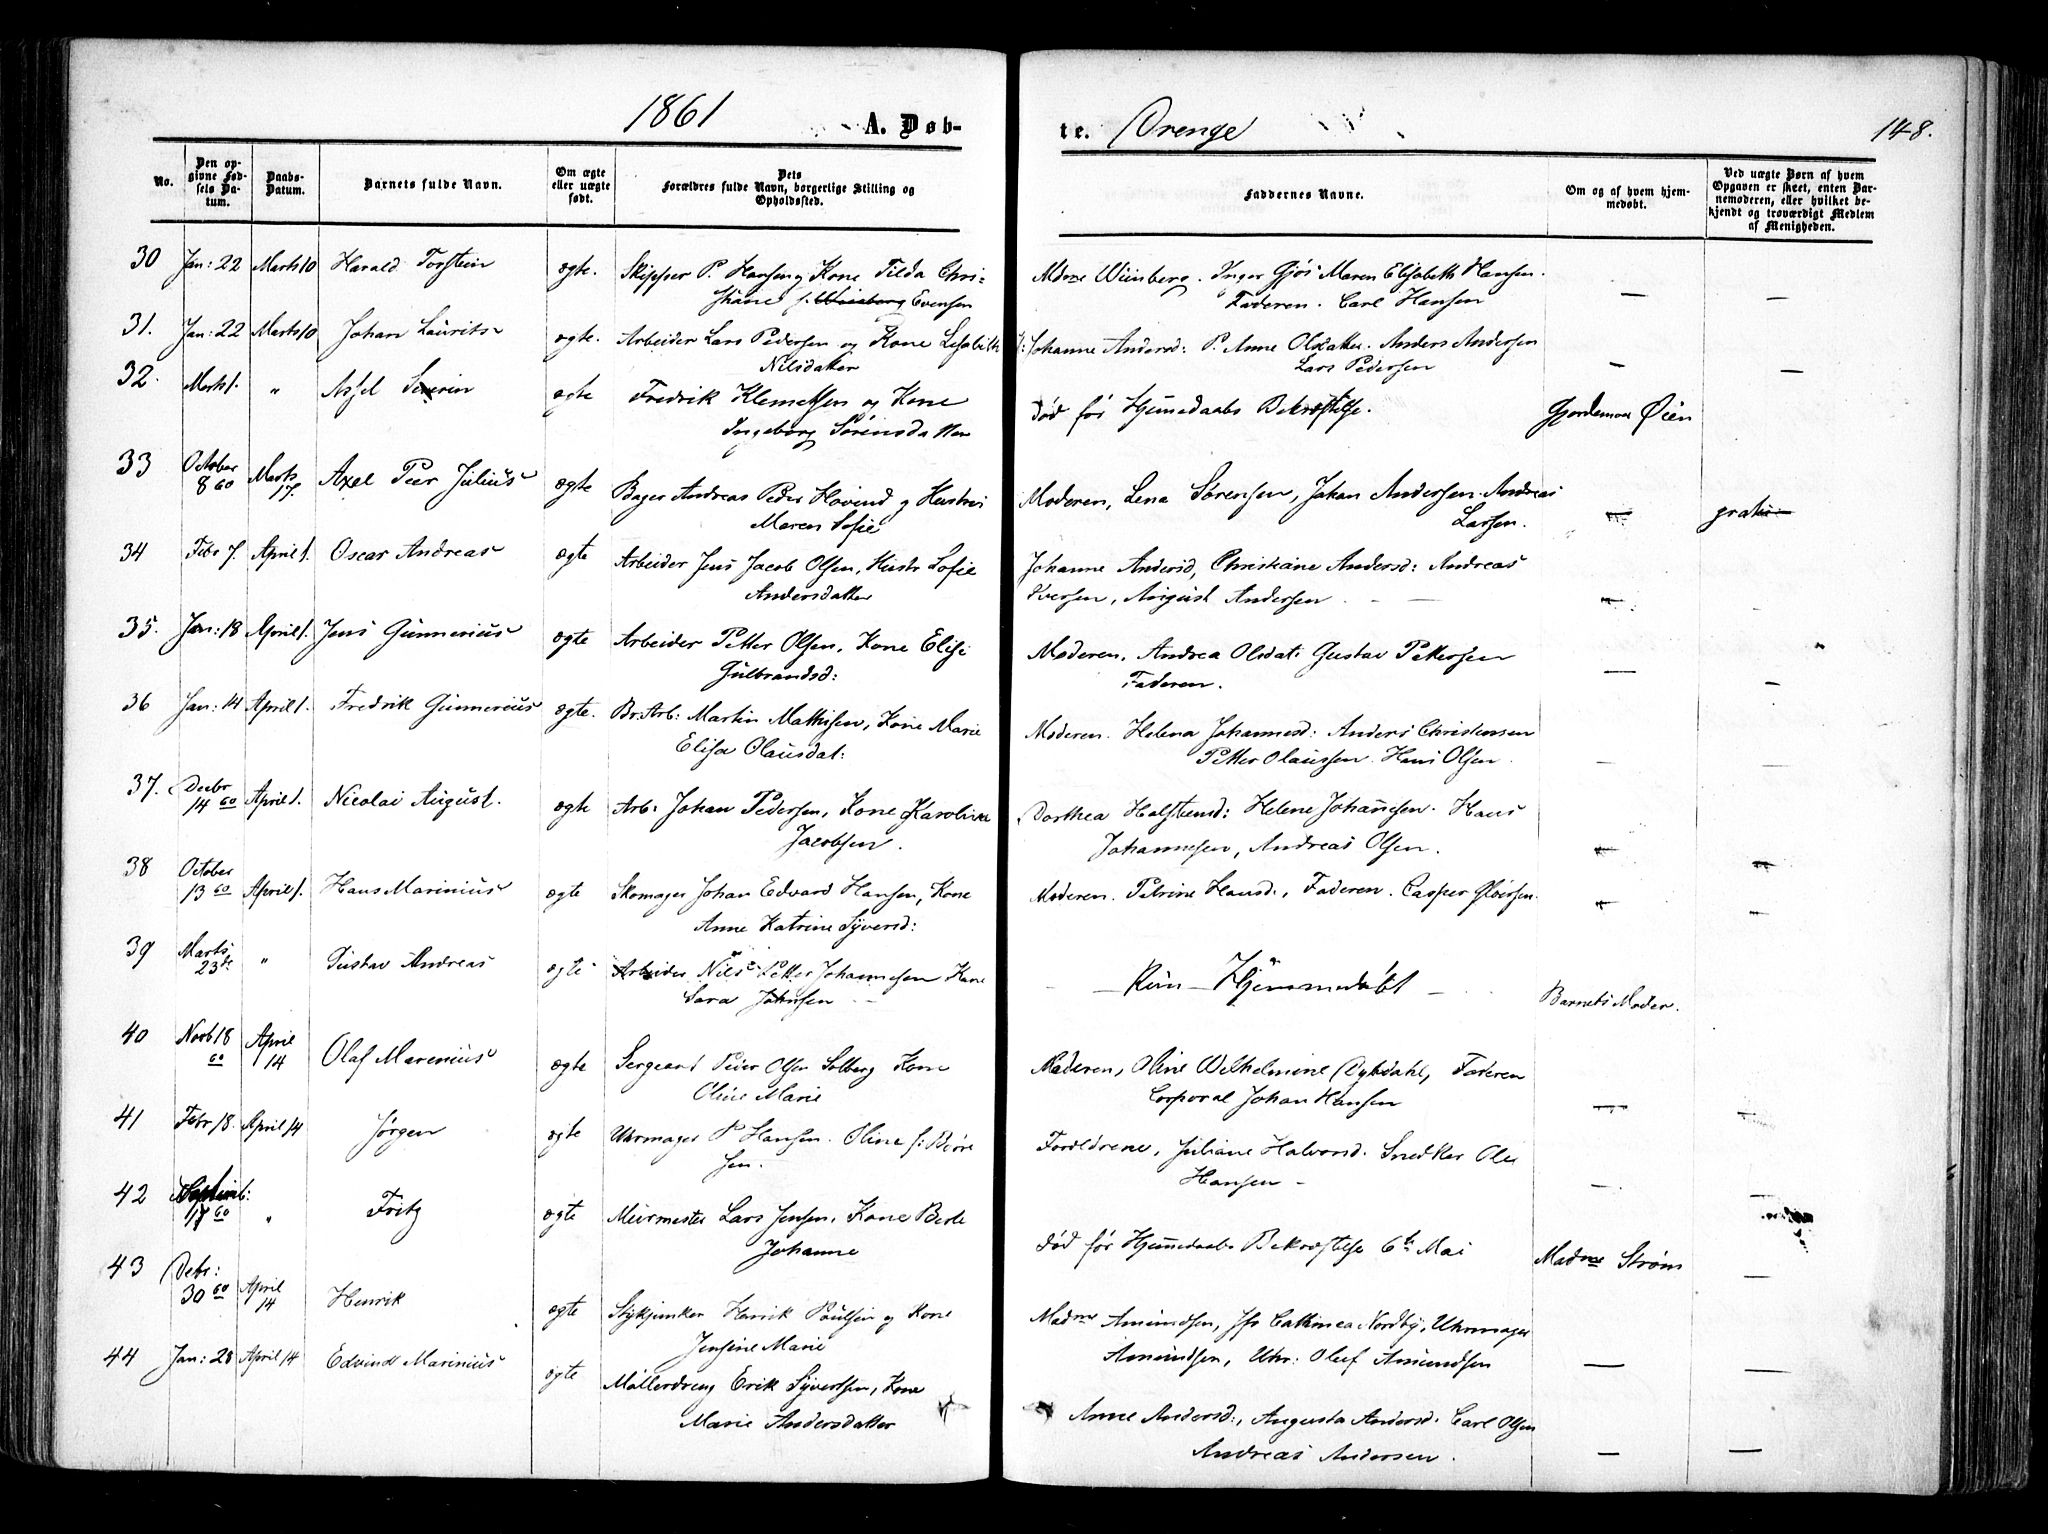 1861
A. Døb-
te. Drenge
148.
No.
Den op-
givne Fød-
sels Da-
tum.
Daabs-
Datum.
Barnets fulde Navn.
Om ægte
eller uægte
født.
Dets
Forældres fulde Navn, borgerlige Stilling og
Opholdssted.
Faddernes Navne.
Om og af hvem hjem-
medøbt.
Ved uægte Børn af hvem
Opgaven er skeet, enten Bar-
nemoderen, eller hvilket be-
kjendt og troværdigt Medlem
af Menigheden.
30 Jan: 22 Marts 10 Harald Torstein ægte. Skipper P. Hansen og Kone Tilda Chri- Mdme Wiinberg. Inger Gjøs Maren Elisabeth Hansen.
stiane f. Evensen Faderen. Carl Hansen — —
31. Jan: 22 Marts 10 Johan Laurits ægte. Arbeider Lars Pedersen og Kone Johanne Andersd: P. Anne Olsdatter. Anders Andersen
Nilsdatter Lars Pedersen — —
32. Marts 1. " Axel Severin ægte Fredrik Klemetsen og Kone Død før Hjemmedaabs Bekræftelse. Gjordemoer Øien
Ingeborg Sørensdatter
33 October 8 60 Marts 17. Axel Peer Julius ægte Bager Andreas Peder Hovind og Hustru Moderen, Lena Sørensen, Johan Andersen. Andreas
Maren Sofie Larsen. — gratis
34 Febr 7. April 1. Oscar Andreas ægte Arbeider Jens Jacob Olsen, Hustr Sofie Johanne Andersd, Christiane Andersd: Andreas
Andersdatter Iversen, August Andersen — —
35. Jan: 18 April 1. Jens Gunnerius ægte Arbeider Petter Olsen, Kone Elise Moderen. Andrea Olsdat: Gustav Pettersen
Gulbrandsd: Faderen. — —
36 Jan: 14 April 1. Fredrik Gunnerius ægte. Br: Arb: Martin Mathisen, Kone Marie Moderen. Helena Johannesd: Anders Christensen
Elise Olausdat: Petter Olaussen. Hans Olsen. — —
37. Decbr 14 60 April 1. Nicolai August. ægte Arb: Johan Pedersen, Kone Karoline Dorthea Halstensd: Helene Johanesen. Hans
Jacobsen. Johannesen, Andreas Olsen. — —
38 October 13 60 April 1. Hans Marinius ægte Skomager Johan Edvard Hansen, Kone Moderen. Petrine Hansd:, Faderen. Casper — —
Anne Katrine Syversd:
39 Marts 23de " Gustav Andreas ægte Arbeider Nils Petter Johannesen Kone — Kun Hjemmedøbt — Barnets Moder.
Sara Johnsen
40 Novb 18 60 April 14 Olaf Marenius ægte Sergeant Peder Olsen Solberg Kone Moderen, Oline Wilhelmine Dybdahl, Faderen
Oline Marie Corporal Johan Hansen — —
41 Febr 18. April 14 Jørgen ægte Uhrmager P Hansen. Oline f: Børre Forældrene, Juliane Halvorsd. Snedker Ole
sen. Hansen — —
42 17 60 " Fritz ægte Muurmester Lars Jensen, Kone Berte Død før Hjemmedaabs Bekræftelse 6te Mai Madme Strøm —
Johanne
43 Debr: 30 60 April 14 Henrik ægte Stykjunker Henrik Poulsen og Kone Madme Amundsen, Jfr Cathinca Nordby, Uhrmager
Jensine Marie Amundsen, Uhr: Oluf Amundsen — —
44 Jan: 28 April 14 Edvind Marinius ægte Møllerdreng Erik Syvertsen, Kone Anne Andersd:, Augusta Andersd. Carl Olsen
Marie Andersdatter Andreas Andersen. — —